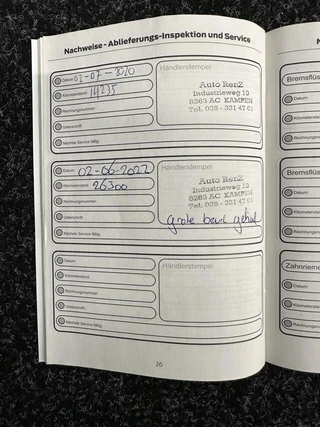 Nachweise - Ablieferungs-Inspektion und Service
Datum: 02-07-2020
Kilometerstand: 14235
Rechnungsnummer:
Unterschrift:
Nächste Service fällig:
Händlerstempel
Auto RenZ
Industrieweg 10
8263 AC KAMPEN
Tel. 038 - 331 47 01
Datum: 02-06-2022
Kilometerstand: 26300
Rechnungsnummer:
Unterschrift:
Nächste Service fällig:
Händlerstempel
Auto RenZ
Industrieweg 10
8263 AC KAMPEN
Tel. 038 - 331 47 01
grote beurt gehad
Datum:
Kilometerstand:
Rechnungsnummer:
Unterschrift:
Nächste Service fällig:
Händlerstempel
26
Bremsflüs
Datum:
Kilometerst
Rechnungs
Bremsflüs
Datum:
Kilometerst
Rechnungs
Zahnrieme
Datum:
Kilometerst
Rechnungs